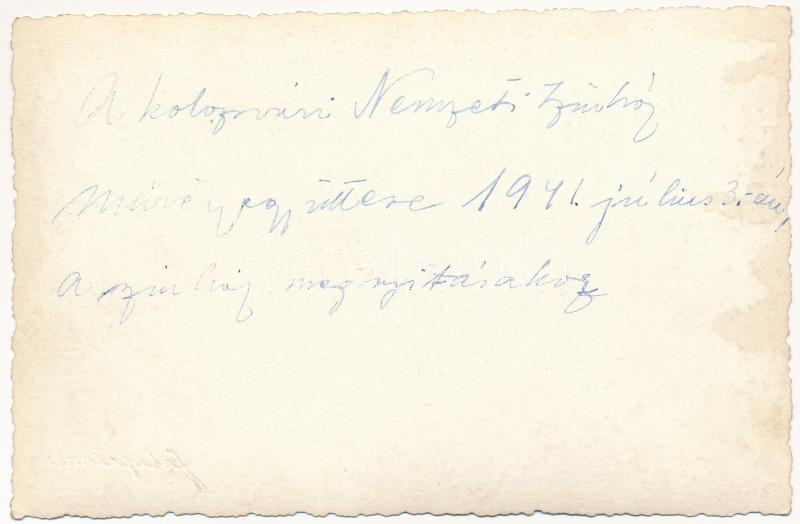 A kolozsvári Nemzeti Színház
művészegyüttese 1941. július 3.-án,
a színház megnyitásakor